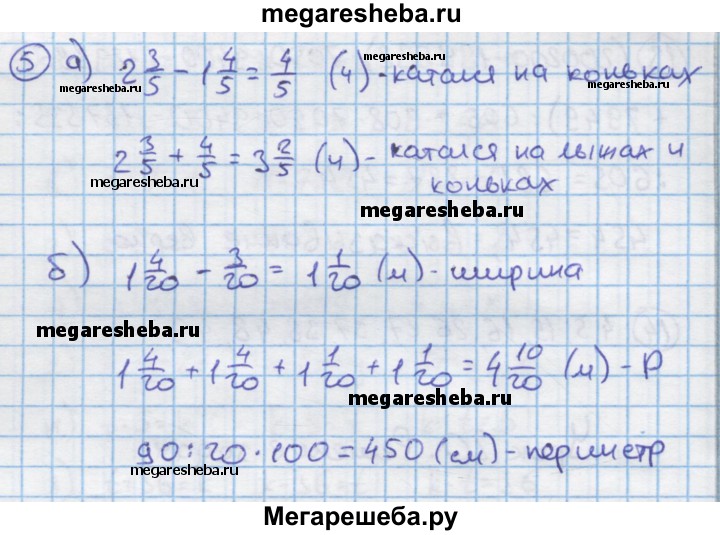 megaresheba.ru
5 а) 2 3/5 - 1 4/5 = 4/5 (ч) - катался на коньках
megaresheba.ru
megaresheba.ru
megaresheba.ru
2 3/5 + 4/5 = 3 2/5 (ч) - катался на лыжах и
коньках
megaresheba.ru
megaresheba.ru
б) 1 4/20 - 3/20 = 1 1/20 (м) - ширина
megaresheba.ru
1 4/20 + 1 4/20 + 1 1/20 + 1 1/20 = 4 10/20 (м) - P
megaresheba.ru
90 : 20 · 100 = 450 (см) - периметр
megaresheba.ru
Мегарешеба.ру